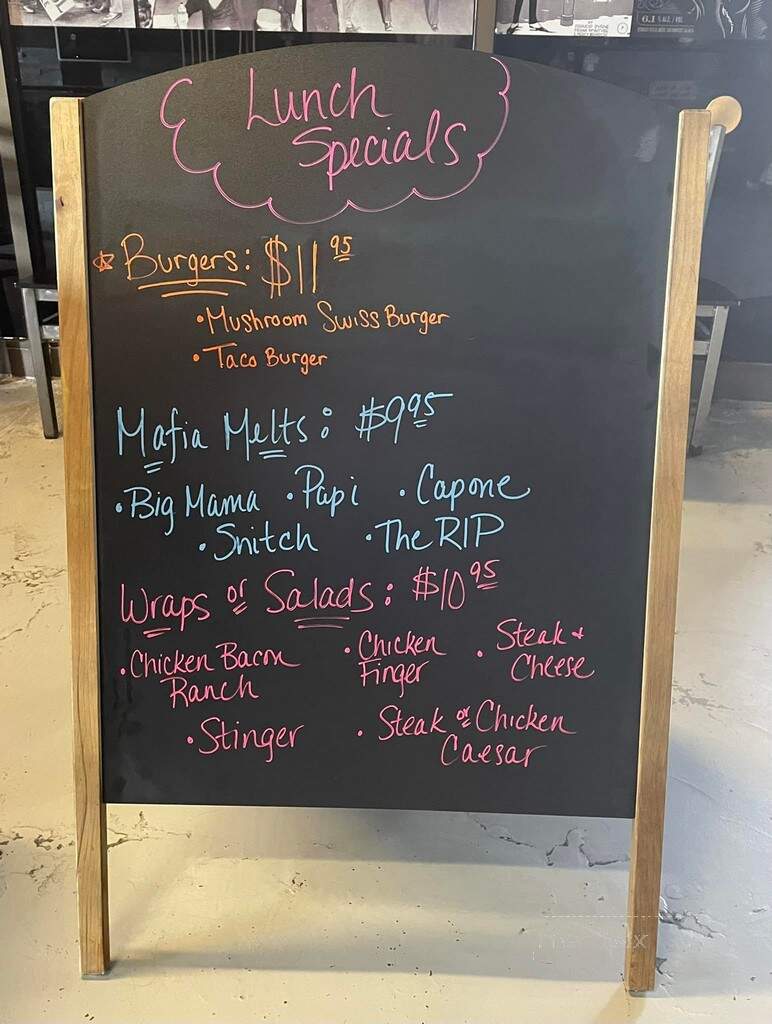 Lunch
Specials
Burgers: $11 95
• Mushroom Swiss Burger
• Taco Burger
Mafia Melts: $9 95
• Big Mama • Papi • Capone
• Snitch • The RIP
Wraps or Salads: $10 95
• Chicken Bacon Ranch • Chicken Finger • Steak & Cheese
• Stinger • Steak or Chicken Caesar